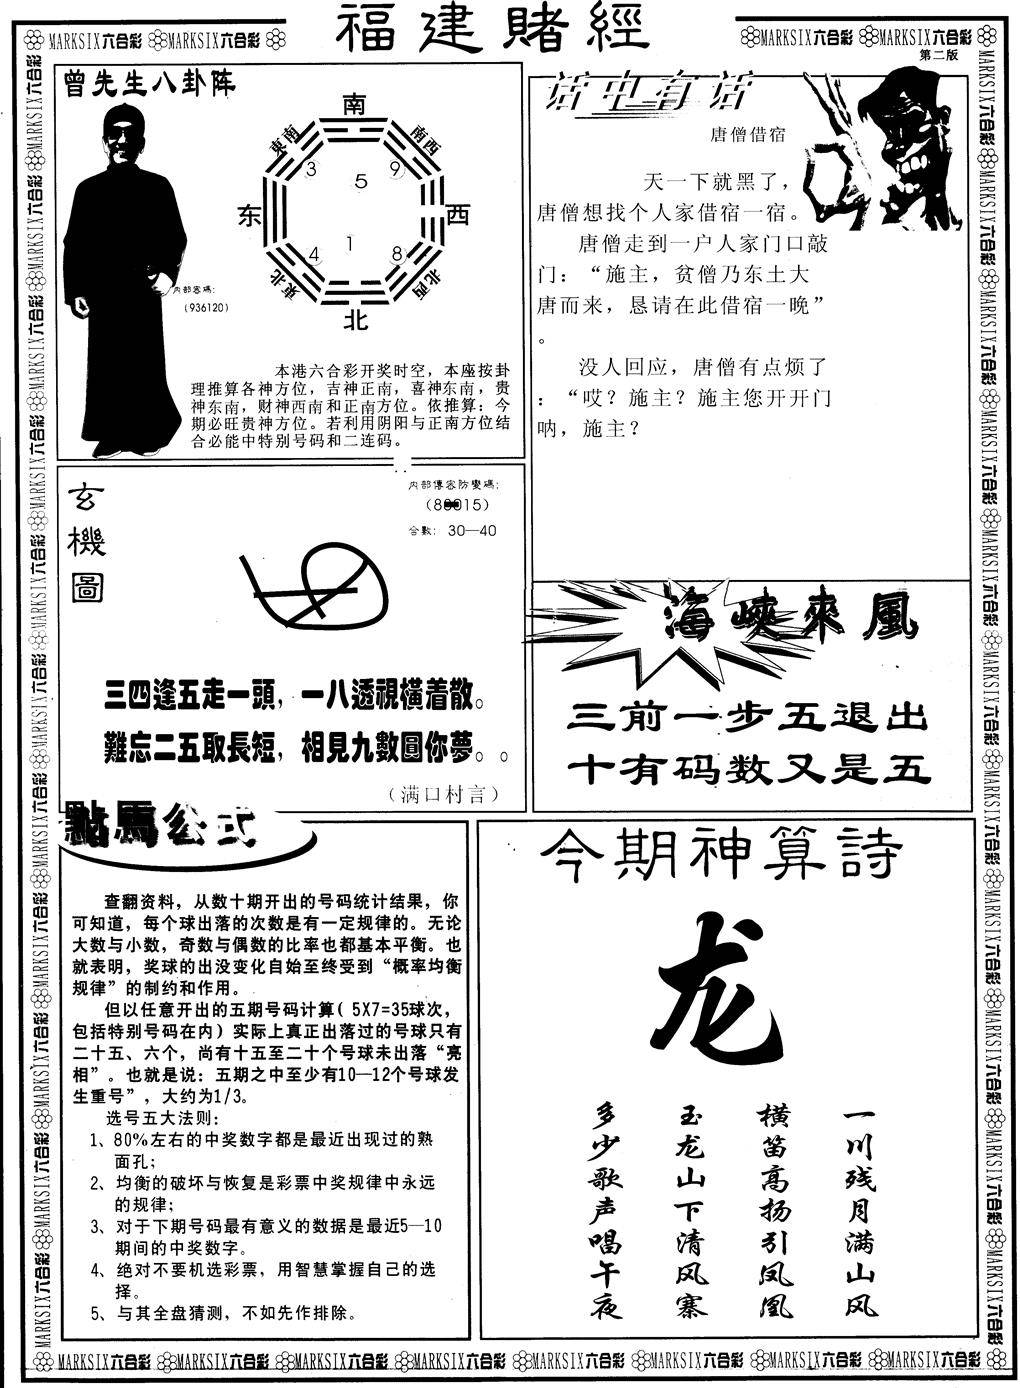 福建賭經
MARKSIX六合彩 MARKSIX六合彩
MARKSIX六合彩 MARKSIX六合彩
第二版
曾先生八卦阵
南
東南
南西
3
9
5
东
西
4
1
8
東北
北西
北
内部密碼:
(936120)
本港六合彩开奖时空，本座按卦
理推算各神方位，吉神正南，喜神东南，贵
神东南，财神西南和正南方位。依推算：今
期必旺贵神方位。若利用阴阳与正南方位结
合必能中特别号码和二连码。
话中有话
唐僧借宿
天一下就黑了，
唐僧想找个人家借宿一宿。
唐僧走到一户人家门口敲
门：“施主，贫僧乃东土大
唐而来，恳请在此借宿一晚”
。
没人回应，唐僧有点烦了
：“哎？施主？施主您开开门
呐，施主？
玄機圖
内部傳密防變碼:
合數: 30—40
三四逢五走一頭，一八透視橫着散。
難忘二五取長短，相見九數圓你夢。。
（满口村言）
海峽來風
三前一步五退出
十有码数又是五
點馬公式
查翻资料，从数十期开出的号码统计结果，你
可知道，每个球出落的次数是有一定规律的。无论
大数与小数，奇数与偶数的比率也都基本平衡。也
就表明，奖球的出没变化自始至终受到“概率均衡
规律”的制约和作用。
但以任意开出的五期号码计算( 5X7=35球次，
包括特别号码在内）实际上真正出落过的号球只有
二十五、六个，尚有十五至二十个号球未出落“亮
相”。也就是说：五期之中至少有10—12个号球发
生重号”，大约为1/3。
选号五大法则:
1、80%左右的中奖数字都是最近出现过的熟
面孔;
2、均衡的破坏与恢复是彩票中奖规律中永远
的规律;
3、对于下期号码最有意义的数据是最近5—10
期间的中奖数字。
4、绝对不要机选彩票，用智慧掌握自己的选
择。
5、与其全盘猜测，不如先作排除。
今期神算詩
龙
一川残月满山风
横笛高扬引凤凰
玉龙山下清风寨
多少歌声唱午夜
MARKSIX六合彩 MARKSIX六合彩 MARKSIX六合彩 MARKSIX六合彩 MARKSIX六合彩 MARKSIX六合彩 MARKSIX六合彩 MARKSIX六合彩